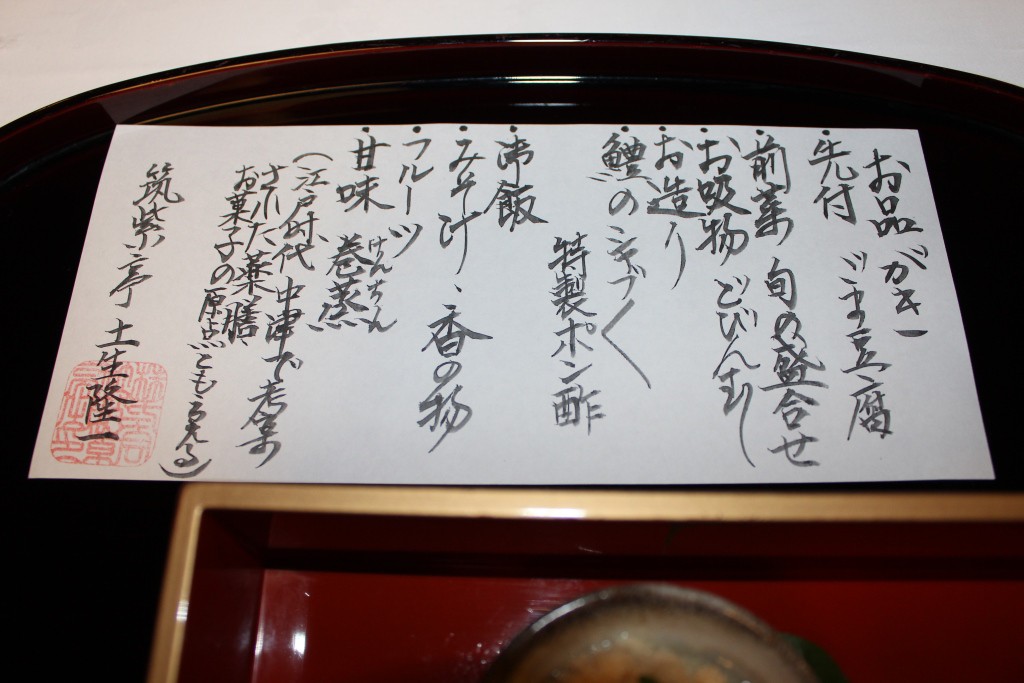 お品がき
・先付 ごま豆腐
・前菜 旬の盛合せ
・お吸物 どびんむし
・お造り
・鱧のしゃぶしゃぶ
特製ポン酢
・御飯
・みそ汁、香の物
・フルーツ
・甘味 巻蒸
けんちん
(江戸时代、中津で考案
された薬膳
お菓子の原点ともいえる)
筑紫亭 土生隆一